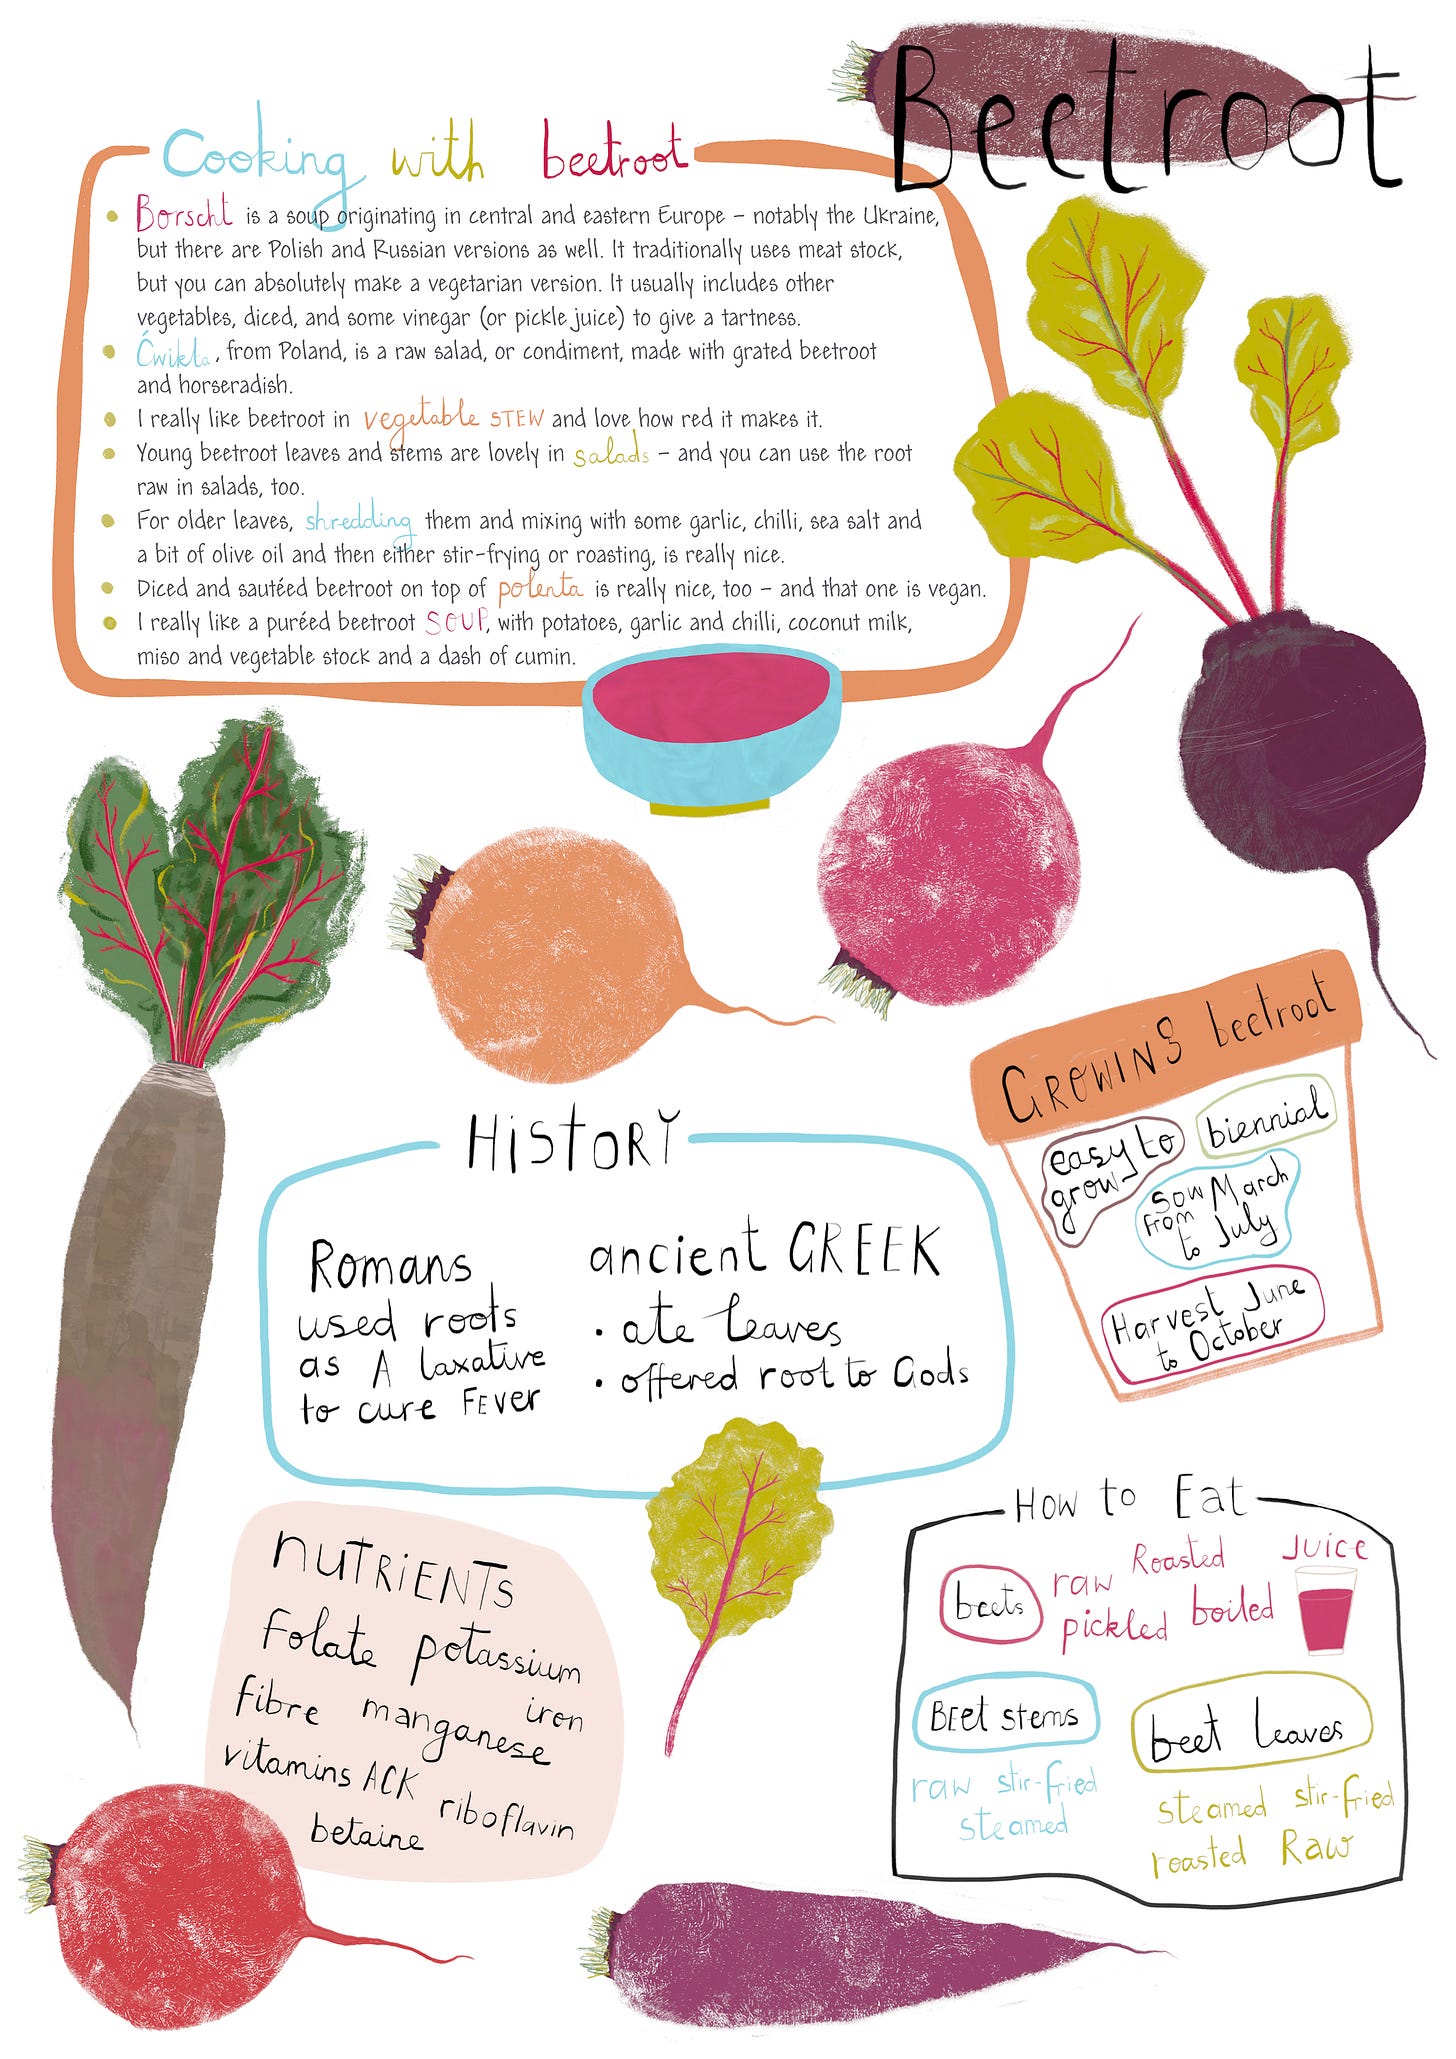 Beetroot
Cooking with beetroot
Borscht is a soup originating in central and eastern Europe – notably the Ukraine,
but there are Polish and Russian versions as well. It traditionally uses meat stock,
but you can absolutely make a vegetarian version. It usually includes other
vegetables, diced, and some vinegar (or pickle juice) to give a tartness.
Ćwikła, from Poland, is a raw salad, or condiment, made with grated beetroot
and horseradish.
I really like beetroot in vegetable STEW and love how red it makes it.
Young beetroot leaves and stems are lovely in salads – and you can use the root
raw in salads, too.
For older leaves, shredding them and mixing with some garlic, chilli, sea salt and
a bit of olive oil and then either stir-frying or roasting, is really nice.
Diced and sautéed beetroot on top of polenta is really nice, too – and that one is vegan.
I really like a puréed beetroot SOUP, with potatoes, garlic and chilli, coconut milk,
miso and vegetable stock and a dash of cumin.
GROWING beetroot
easy to
grow
biennial
sow March
from
to July
Harvest June
to October
HiStORY
Romans
used roots
as A laxative
to cure FEVER
ancient GREEK
• ate leaves
• offered root to Gods
nUTRiENTS
Folate potassium
fibre manganese iron
vitamins ACK
riboflavin
betaine
HOW to Eat
beets
raw Roasted
pickled boiled
JUICE
BEEt stems
raw stir-fried
steamed
beet leaves
steamed stir-fried
roasted Raw